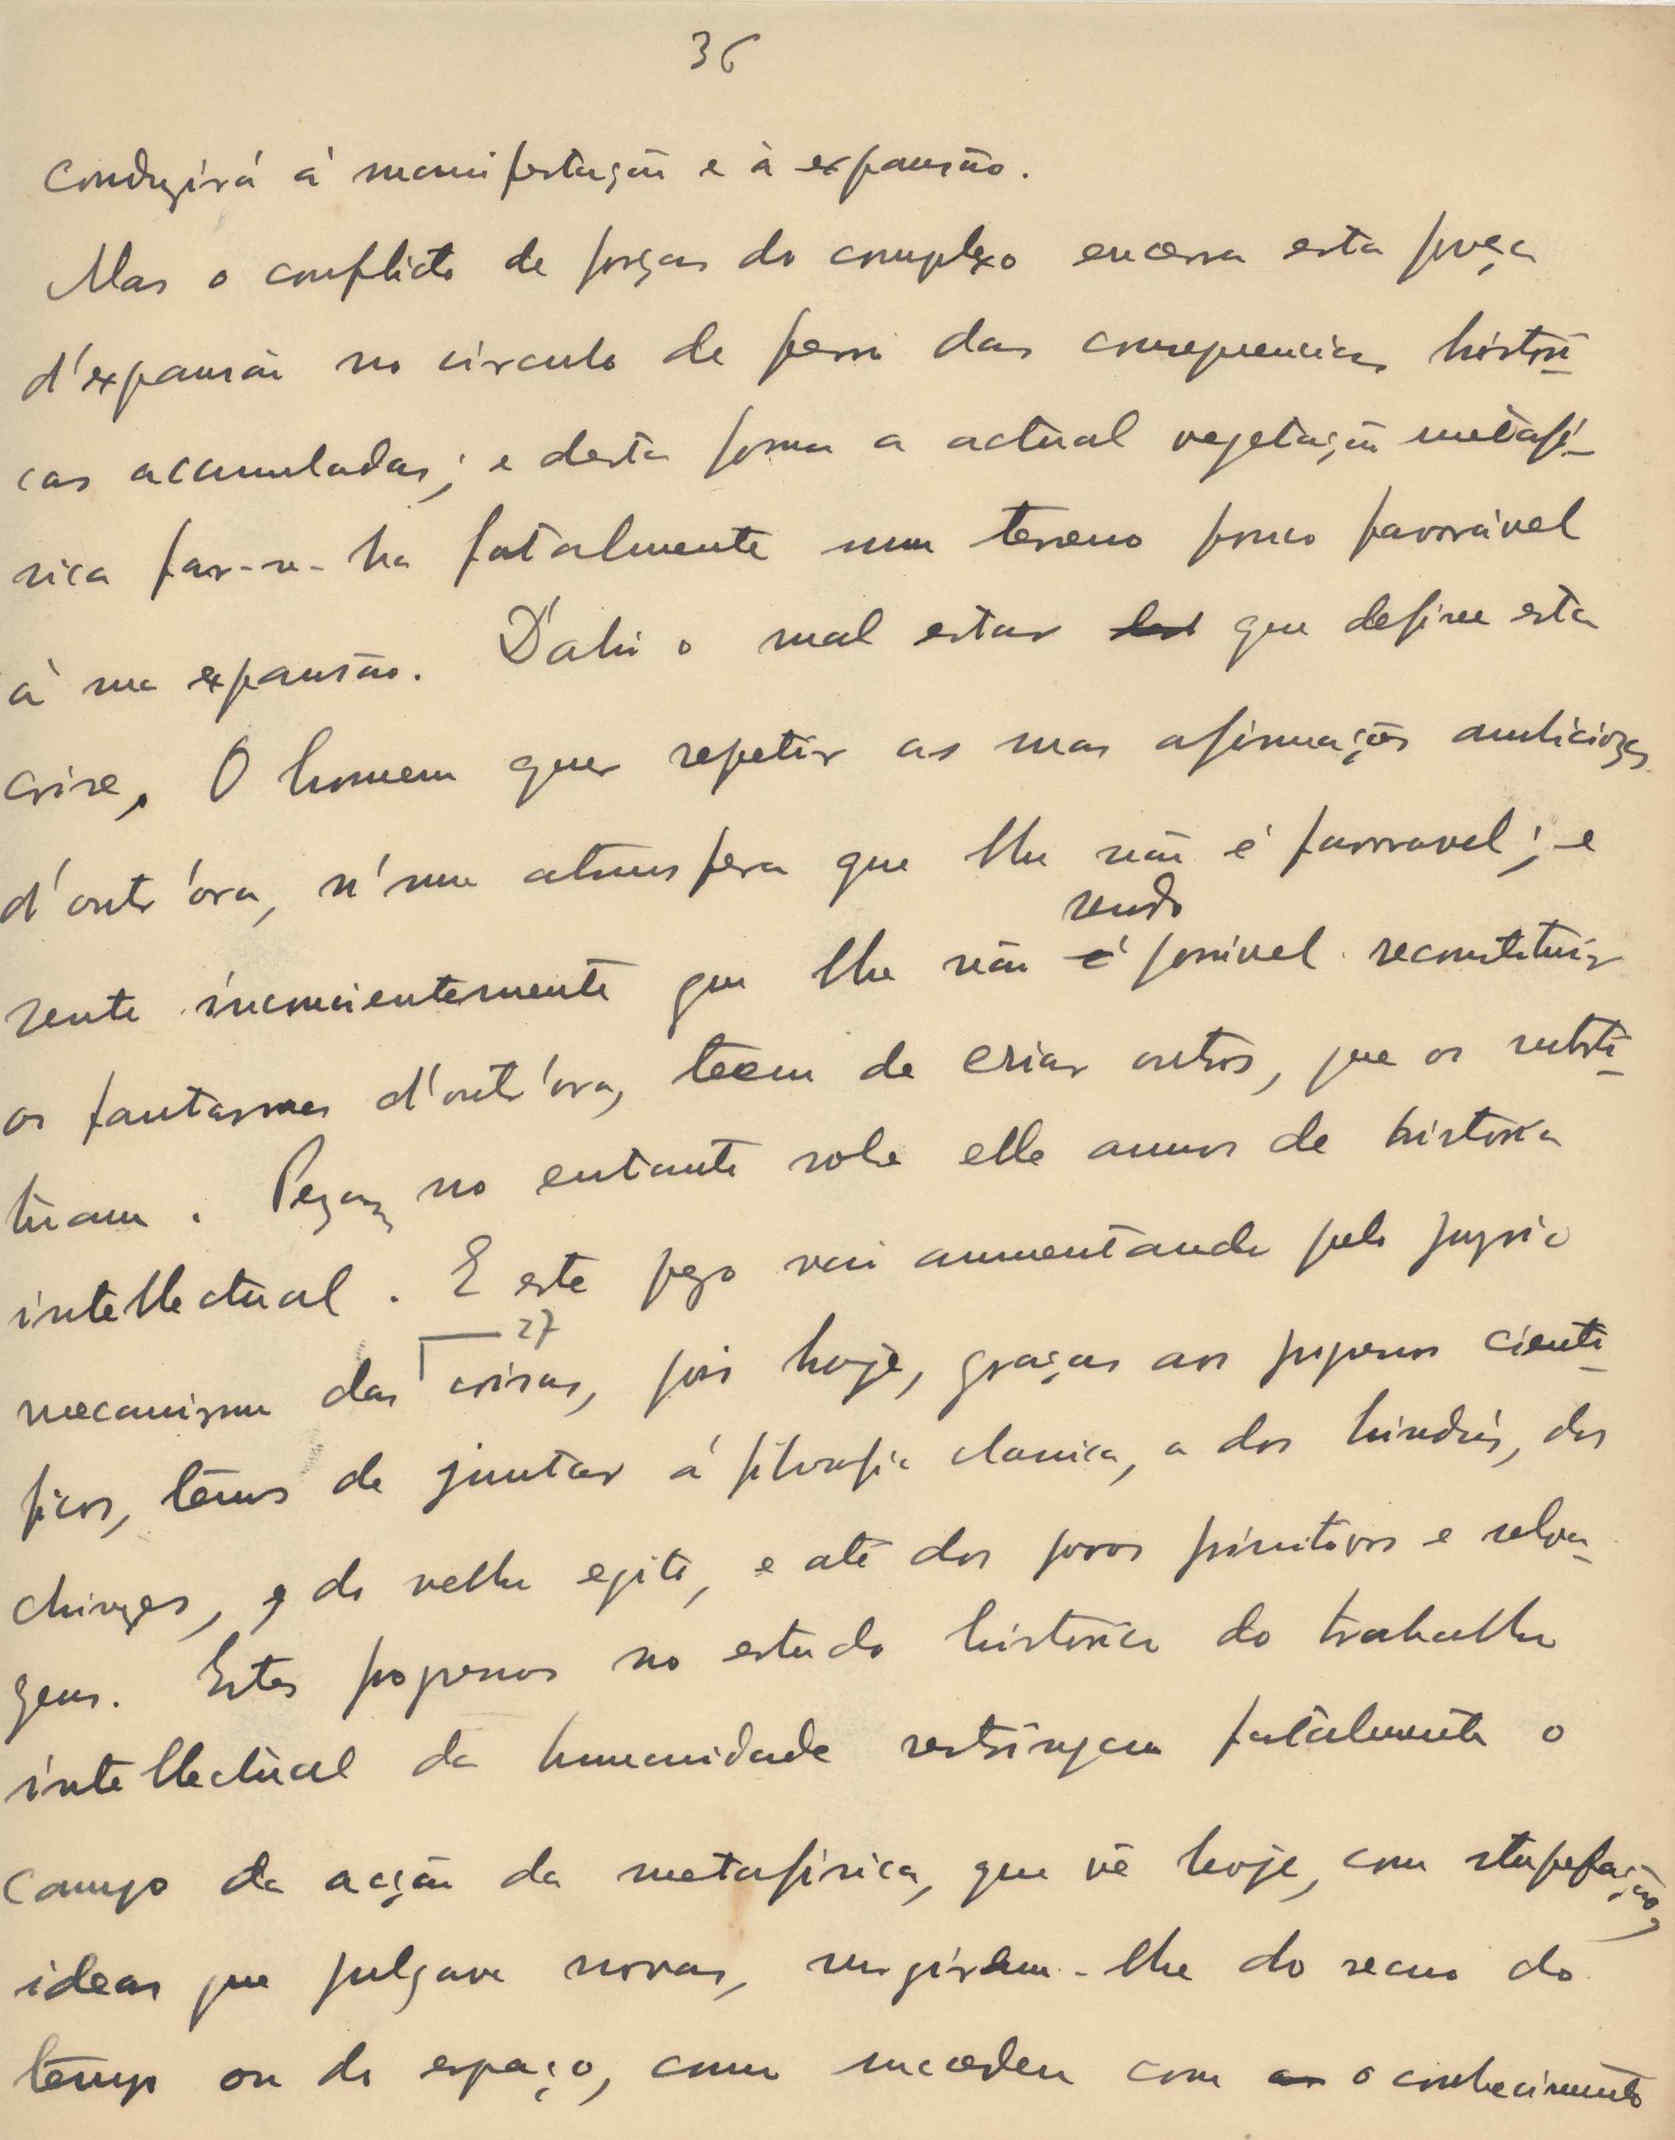 36
conduzirá á manifestação e à expansão.
Mas o conflicto de forças do complexo encerra esta força
d'expansão no circulo de ferro das consequencias histori-
cas acumuladas; e desta forma a actual vegetação metafí-
sica far-se-ha fatalmente num terreno pouco favorável
à sua expansão. D'ahi o mal estar que define esta
crise. O homem quer repetir as suas afirmações audiciozas
d'outr'ora, n'uma atmosfera que lhe não é favoravel; e
sendo
sente inconcientemente que lhe não é possivel reconstituir
os fantasmas d'outr'ora, teem de criar outros, que os substi-
tuam. Pezam no entanto sobre elle annos de historia
intellectual. E este pezo vai aumentando pelo proprio
27
mecanismo das coisas, pois hoje, graças aos progressos cienti-
ficos, têmos de juntar á filosofia classica, a dos hindús, dos
chinezes, e do velho egito, e até dos povos primitivos e selva-
gens. Estes progressos no estudo historico do trabalho
intellectual da humanidade restringem fatalmente o
campo da acção da metafísica, que vê hoje, com stupefação,
ideas que julgava novas, surgirem-lhe do recuo do
têmpo ou do espaço, como sucedeu com o conhecimento